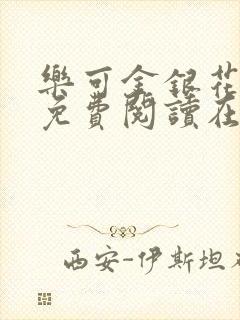 樂可金銀花
免費閱讀在
西安-伊斯坦